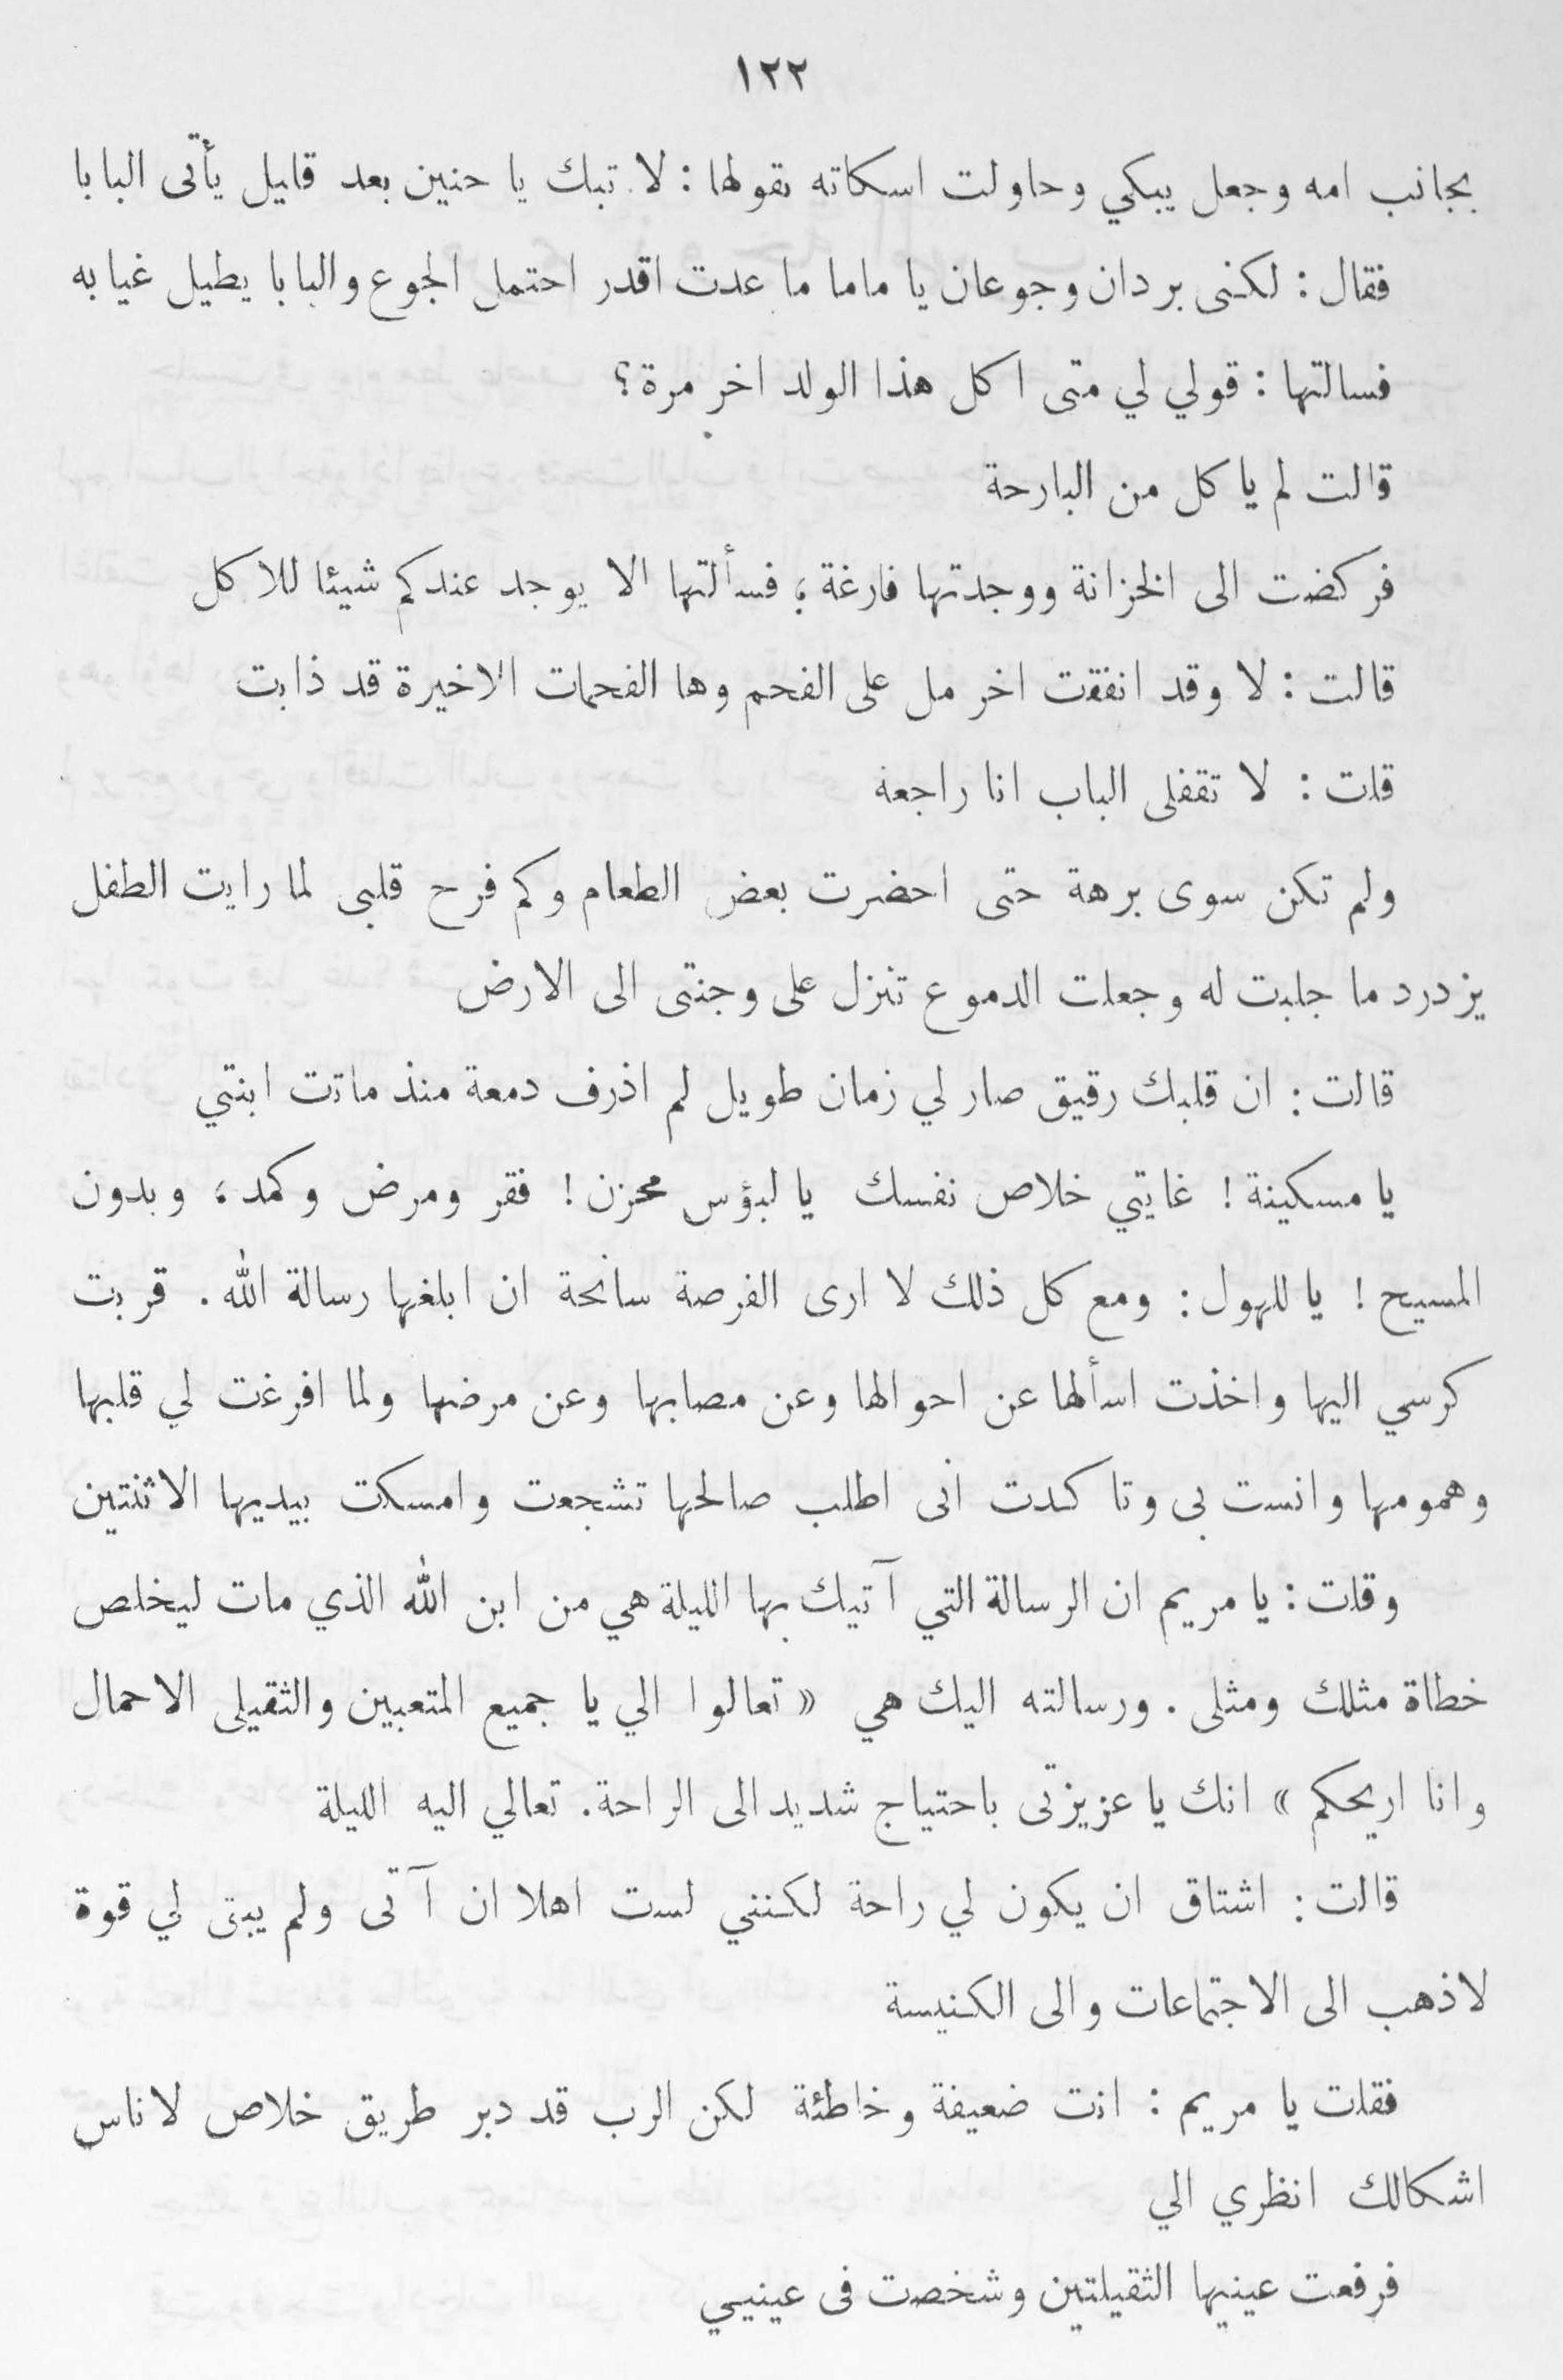 ١٢٢
بجانب امه وجعل يبكي وحاولت اسكاته بقولها : لا تبك يا حنين بعد قليل يأتى البابا
فقال : لكنى بردان وجوعان يا ماما ما عدت اقدر احتمل الجوع والبابا يطيل غيابه
فسالتها : قولي لي متى اكل هذا الولد اخر مرة ؟
قالت لم ياكل من البارحة
فركضت الى الخزانة ووجدتها فارغة ؛ فسألتها الا يوجد عندكم شيئا للاكل
قالت : لا وقد انفقت اخر مل على الفحم وها الفحمات الاخيرة قد ذابت
قلت : لا تقفلى الباب انا راجعة
ولم تكن سوى برهة حتى احضرت بعض الطعام وكم فرح قلبى لما رايت الطفل
يزدرد ما جلبت له وجعلت الدموع تنزل على وجنتى الى الارض
قالت : ان قلبك رقيق صار لي زمان طويل لم اذرف دمعة منذ ماتت ابنتي
يا مسكينة ! غايتي خلاص نفسك يا لبؤس محزن ! فقر ومرض وكمد ؛ وبدون
المسيح ! يا للهول : ومع كل ذلك لا ارى الفرصة سانحة ان ابلغها رسالة الله . قربت
كرسي اليها واخذت اسألها عن احوالها وعن مصابها وعن مرضها ولما افرغت لي قلبها
وهمومها وانست بى وتاكدت انى اطلب صالحها تشجعت وامسكت بيديها الاثنتين
وقلت : يا مريم ان الرسالة التي آتيك بها الليلة هي من ابن الله الذي مات ليخلص
خطاة مثلك ومثلى . ورسالته اليك هي « تعالوا الي يا جميع المتعبين والثقيلى الاحمال
وانا اريحكم » انك يا عزيزتى باحتياج شديد الى الراحة . تعالي اليه الليلة
قالت : اشتاق ان يكون لي راحة لكنني لست اهلا ان آتى ولم يبق لي قوة
لاذهب الى الاجتماعات والى الكنيسة
فقلت يا مريم : انت ضعيفة وخاطئة لكن الرب قد دبر طريق خلاص لاناس
اشكالك انظري الي
فرفعت عينيها الثقيلتين وشخصت فى عينيي